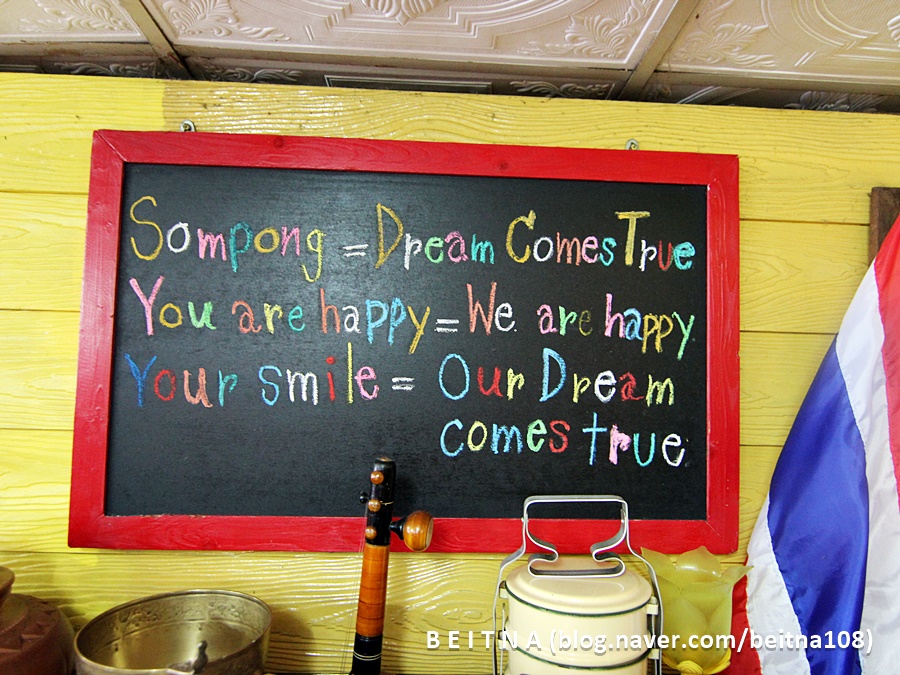 Sompong = Dream Comes True
You are happy = We are happy
Your smile = Our Dream
comes true
BEITNA (blog.naver.com/beitna108)